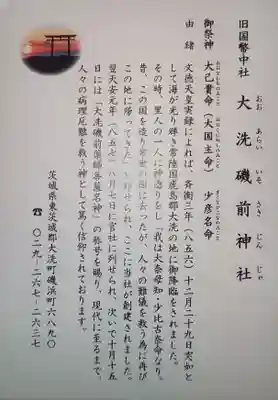 旧国幣中社
大洗磯前神社
おお あらい いそ さき じん じゃ
御祭神 大己貴命(大国主命) 少彦名命
由緒
文徳天皇実録によれば、斉衡三年(八五六)十二月二十九日突如と
して海が光り輝き常陸国鹿島郡大洗の地に御降臨をされました。
その時、里人の一人に神憑りをし「我は大奈母知・少比古奈命なり。
昔、この国を造り常世の国に去ったが、人々の難儀を救う為に再び
この地に帰ってきた」と仰せられ、ここに当社が創建されました。
翌天安元年(八五七)八月七日に官社に列せられ、次いで十月十五
日には「大洗磯前薬師菩薩名神」の称号を賜り、現代に至るまで、
人々の病理厄難を救う神として篤く信仰されております。
茨城県東茨城郡大洗町磯浜町六八九〇
☎ 〇二九-二六七-二六三七